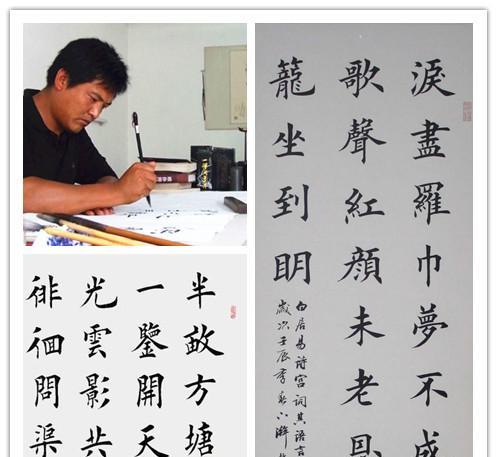 淚盡羅巾夢不成
歌聲紅顏未老恩
籠坐到明
白居易詩宮詞其語言
歲次壬辰
半畝方塘
一鑒開天
光雲影共
徘徊問渠